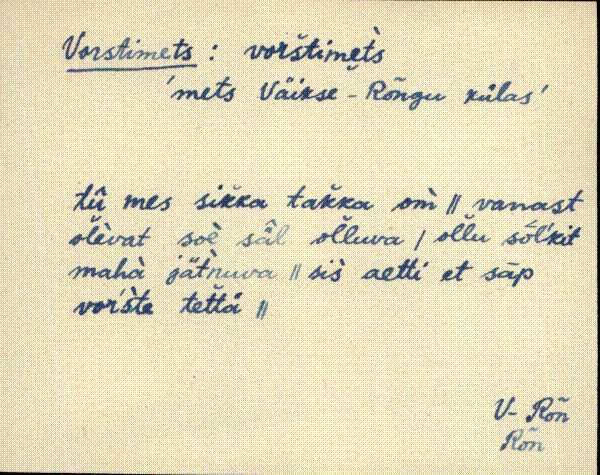 Vorstimets : vorštimet̀s
'mets Väikse-Rõngu külas'
tū̂ mes sik̆ka tak̆ka om̀ || vanast
ol̆l̀evat soè sä̂l ol̆luva / ol̆lu sõl'kit
mahà jät̀nuva || sis̀ aetti et sāp
vor'š̀te tet̆tä ||
V-Rõn
Rõn